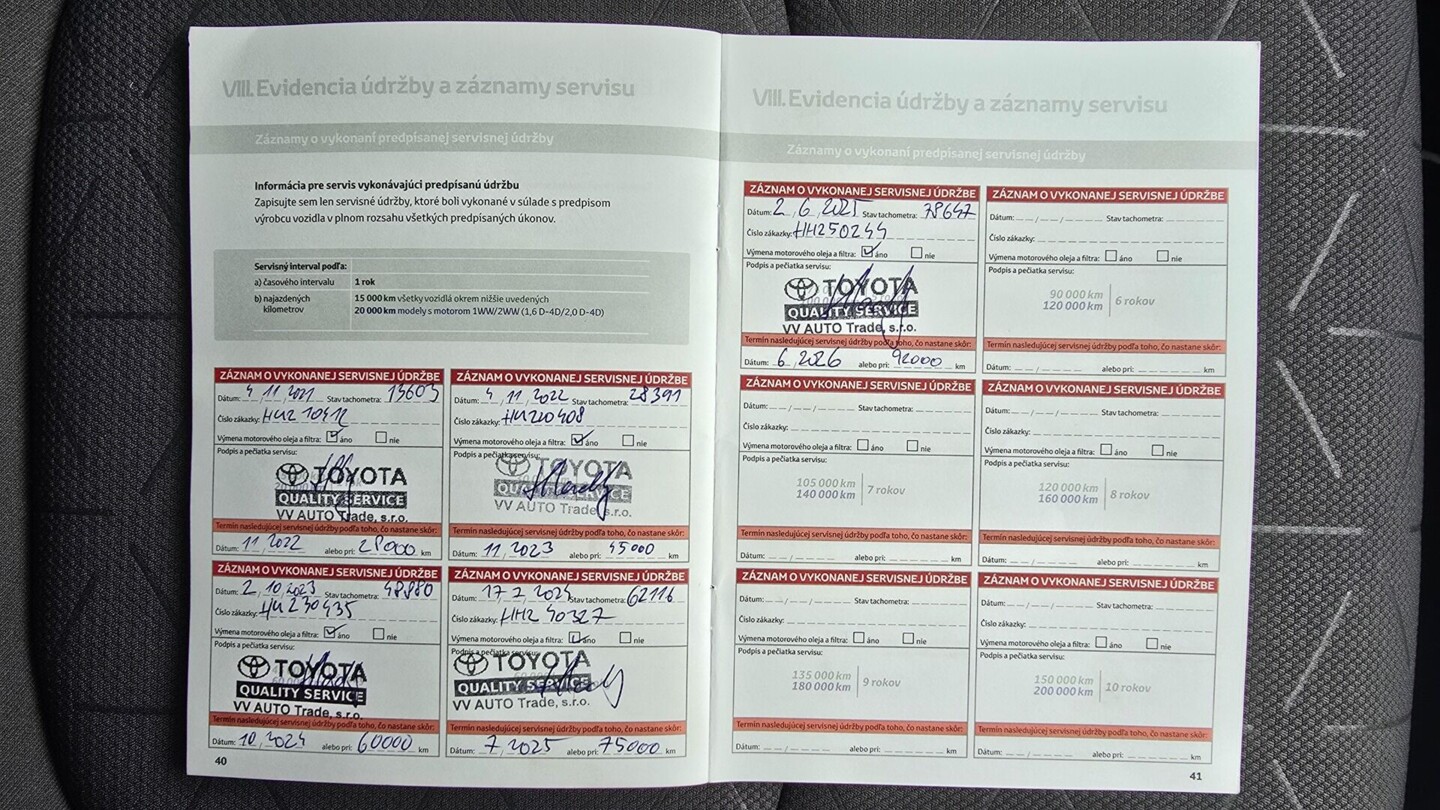 VIII. Evidencia údržby a záznamy servisu
Záznamy o vykonaní predpísanej servisnej údržby
Informácia pre servis vykonávajúci predpísanú údržbu
Zapisujte sem len servisné údržby, ktoré boli vykonané v súlade s predpisom
výrobcu vozidla v plnom rozsahu všetkých predpísaných úkonov.
Servisný interval podľa:
a) časového intervalu 1 rok
b) najazdených 15 000 km všetky vozidlá okrem nižšie uvedených
kilometrov 20 000 km modely s motorom 1WW/2WW (1,6 D-4D/2,0 D-4D)
ZÁZNAM O VYKONANEJ SERVISNEJ ÚDRŽBE
Dátum: 4 / 11 / 2021 Stav tachometra: 13603
Číslo zákazky: HU210412
Výmena motorového oleja a filtra: áno nie
Podpis a pečiatka servisu:
TOYOTA
QUALITY SERVICE
VV AUTO Trade, s.r.o.
Termín nasledujúcej servisnej údržby podľa toho, čo nastane skôr:
Dátum: 11 / 2022 alebo pri: 28000 km
ZÁZNAM O VYKONANEJ SERVISNEJ ÚDRŽBE
Dátum: 4 / 11 / 2022 Stav tachometra: 28391
Číslo zákazky: HU220408
Výmena motorového oleja a filtra: áno nie
Podpis a pečiatka servisu:
TOYOTA
QUALITY SERVICE
VV AUTO Trade, s.r.o.
Termín nasledujúcej servisnej údržby podľa toho, čo nastane skôr:
Dátum: 11 / 2023 alebo pri: 45000 km
ZÁZNAM O VYKONANEJ SERVISNEJ ÚDRŽBE
Dátum: 2 / 10 / 2023 Stav tachometra: 48880
Číslo zákazky: HU230435
Výmena motorového oleja a filtra: áno nie
Podpis a pečiatka servisu:
TOYOTA
QUALITY SERVICE
VV AUTO Trade, s.r.o.
Termín nasledujúcej servisnej údržby podľa toho, čo nastane skôr:
Dátum: 10 / 2024 alebo pri: 60000 km
ZÁZNAM O VYKONANEJ SERVISNEJ ÚDRŽBE
Dátum: 17 / 7 / 2024 Stav tachometra: 62116
Číslo zákazky: HH240327
Výmena motorového oleja a filtra: áno nie
Podpis a pečiatka servisu:
TOYOTA
QUALITY SERVICE
VV AUTO Trade, s.r.o.
Termín nasledujúcej servisnej údržby podľa toho, čo nastane skôr:
Dátum: 7 / 2025 alebo pri: 75000 km
40
VIII. Evidencia údržby a záznamy servisu
Záznamy o vykonaní predpísanej servisnej údržby
ZÁZNAM O VYKONANEJ SERVISNEJ ÚDRŽBE
Dátum: 2 / 6 / 2025 Stav tachometra: 78647
Číslo zákazky: HH250244
Výmena motorového oleja a filtra: áno nie
Podpis a pečiatka servisu:
TOYOTA
QUALITY SERVICE
VV AUTO Trade, s.r.o.
Termín nasledujúcej servisnej údržby podľa toho, čo nastane skôr:
Dátum: 6 / 2026 alebo pri: 92000 km
ZÁZNAM O VYKONANEJ SERVISNEJ ÚDRŽBE
Dátum: / / Stav tachometra:
Číslo zákazky:
Výmena motorového oleja a filtra: áno nie
Podpis a pečiatka servisu:
90 000 km
120 000 km 6 rokov
Termín nasledujúcej servisnej údržby podľa toho, čo nastane skôr:
Dátum: / alebo pri: km
ZÁZNAM O VYKONANEJ SERVISNEJ ÚDRŽBE
Dátum: / / Stav tachometra:
Číslo zákazky:
Výmena motorového oleja a filtra: áno nie
Podpis a pečiatka servisu:
105 000 km
140 000 km 7 rokov
Termín nasledujúcej servisnej údržby podľa toho, čo nastane skôr:
Dátum: / alebo pri: km
ZÁZNAM O VYKONANEJ SERVISNEJ ÚDRŽBE
Dátum: / / Stav tachometra:
Číslo zákazky:
Výmena motorového oleja a filtra: áno nie
Podpis a pečiatka servisu:
120 000 km
160 000 km 8 rokov
Termín nasledujúcej servisnej údržby podľa toho, čo nastane skôr:
Dátum: / alebo pri: km
ZÁZNAM O VYKONANEJ SERVISNEJ ÚDRŽBE
Dátum: / / Stav tachometra:
Číslo zákazky:
Výmena motorového oleja a filtra: áno nie
Podpis a pečiatka servisu:
135 000 km
180 000 km 9 rokov
Termín nasledujúcej servisnej údržby podľa toho, čo nastane skôr:
Dátum: / alebo pri: km
ZÁZNAM O VYKONANEJ SERVISNEJ ÚDRŽBE
Dátum: / / Stav tachometra:
Číslo zákazky:
Výmena motorového oleja a filtra: áno nie
Podpis a pečiatka servisu:
150 000 km
200 000 km 10 rokov
Termín nasledujúcej servisnej údržby podľa toho, čo nastane skôr:
Dátum: / alebo pri: km
41